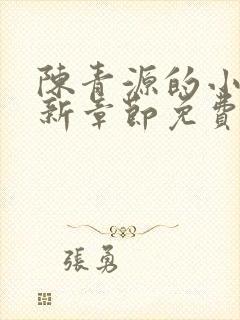 陳青源的小
新章節免費
張勇